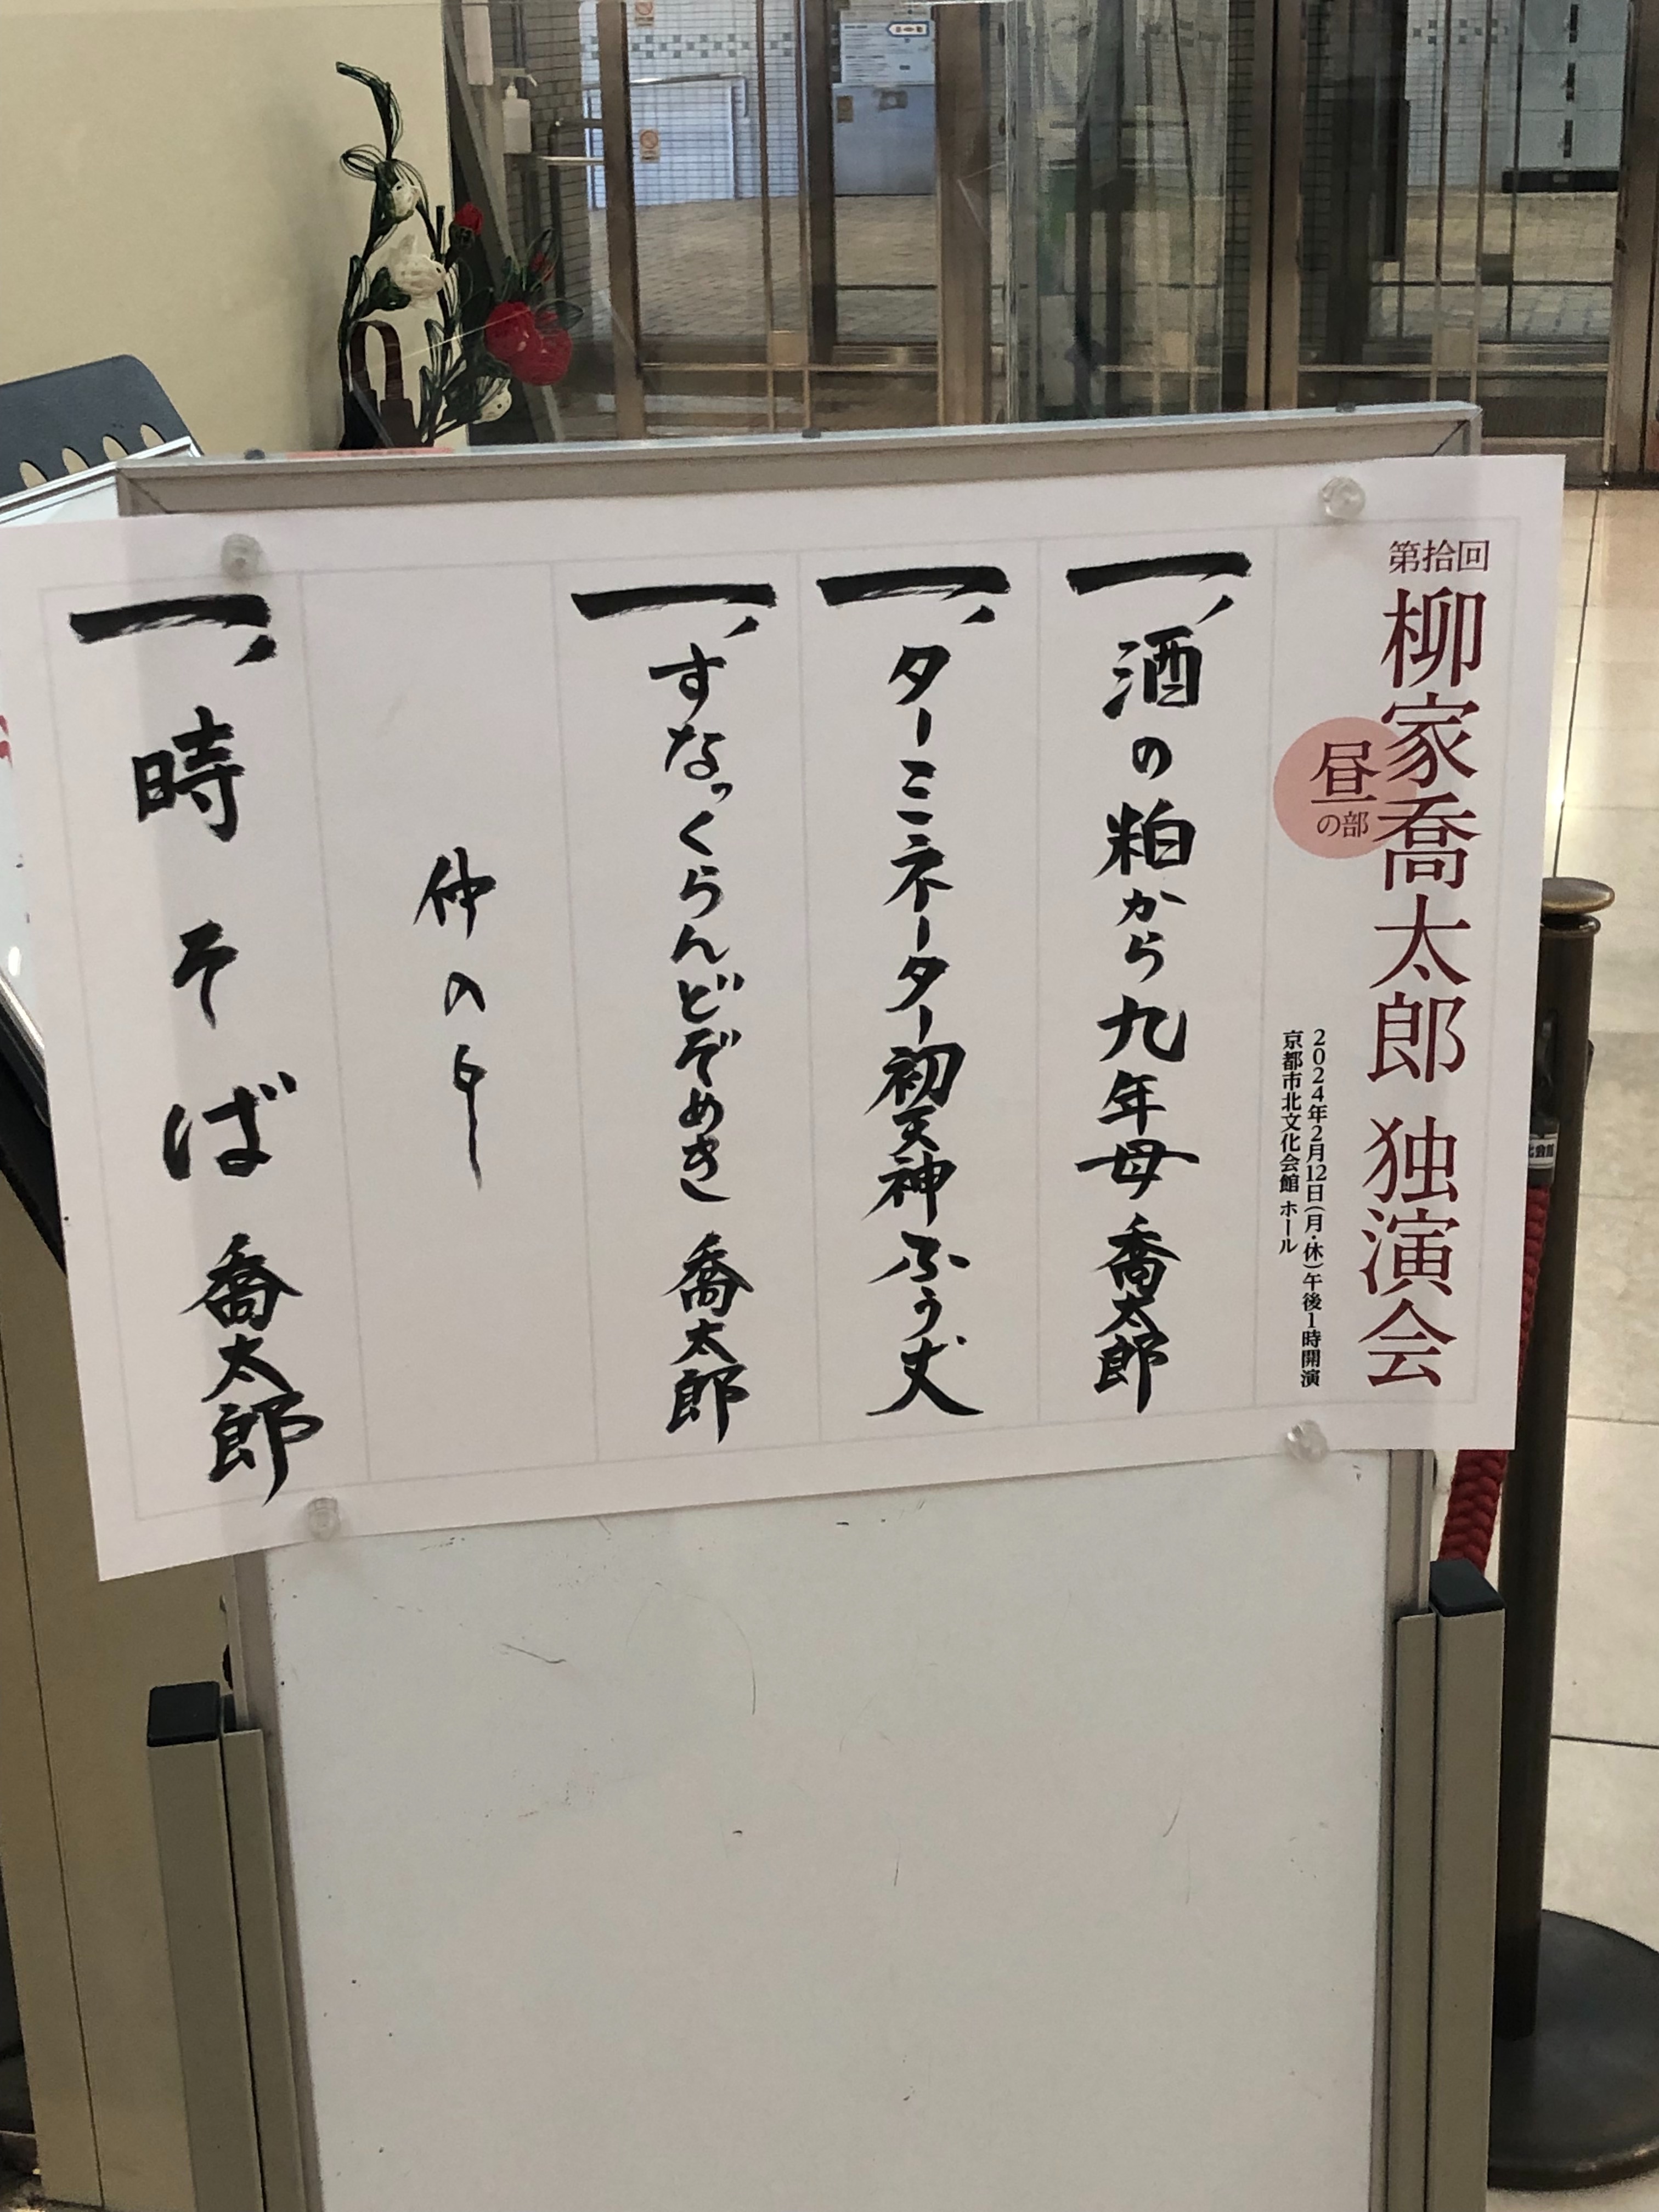 第拾回
柳家喬太郎 独演会
昼の部
2024年2月12日(月・休)午後1時開演
京都市北文化会館 ホール
一、酒の粕から九年母 喬太郎
一、ターミネーター初天神 ふう丈
一、すなっくらんどぞめき 喬太郎
仲入り
一、時そば 喬太郎